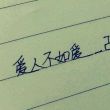 爱人不如爱…